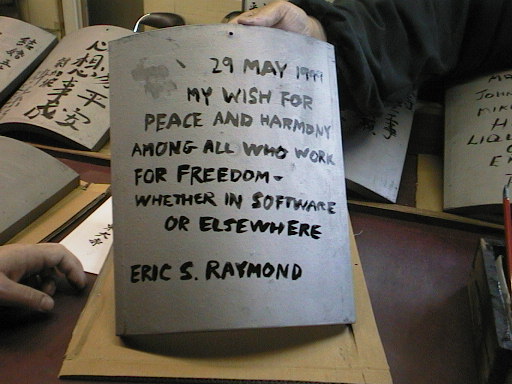 29 MAY 1999
MY WISH FOR
PEACE AND HARMONY
AMONG ALL WHO WORK
FOR FREEDOM -
WHETHER IN SOFTWARE
OR ELSEWHERE
ERIC S. RAYMOND
心想事成
平安